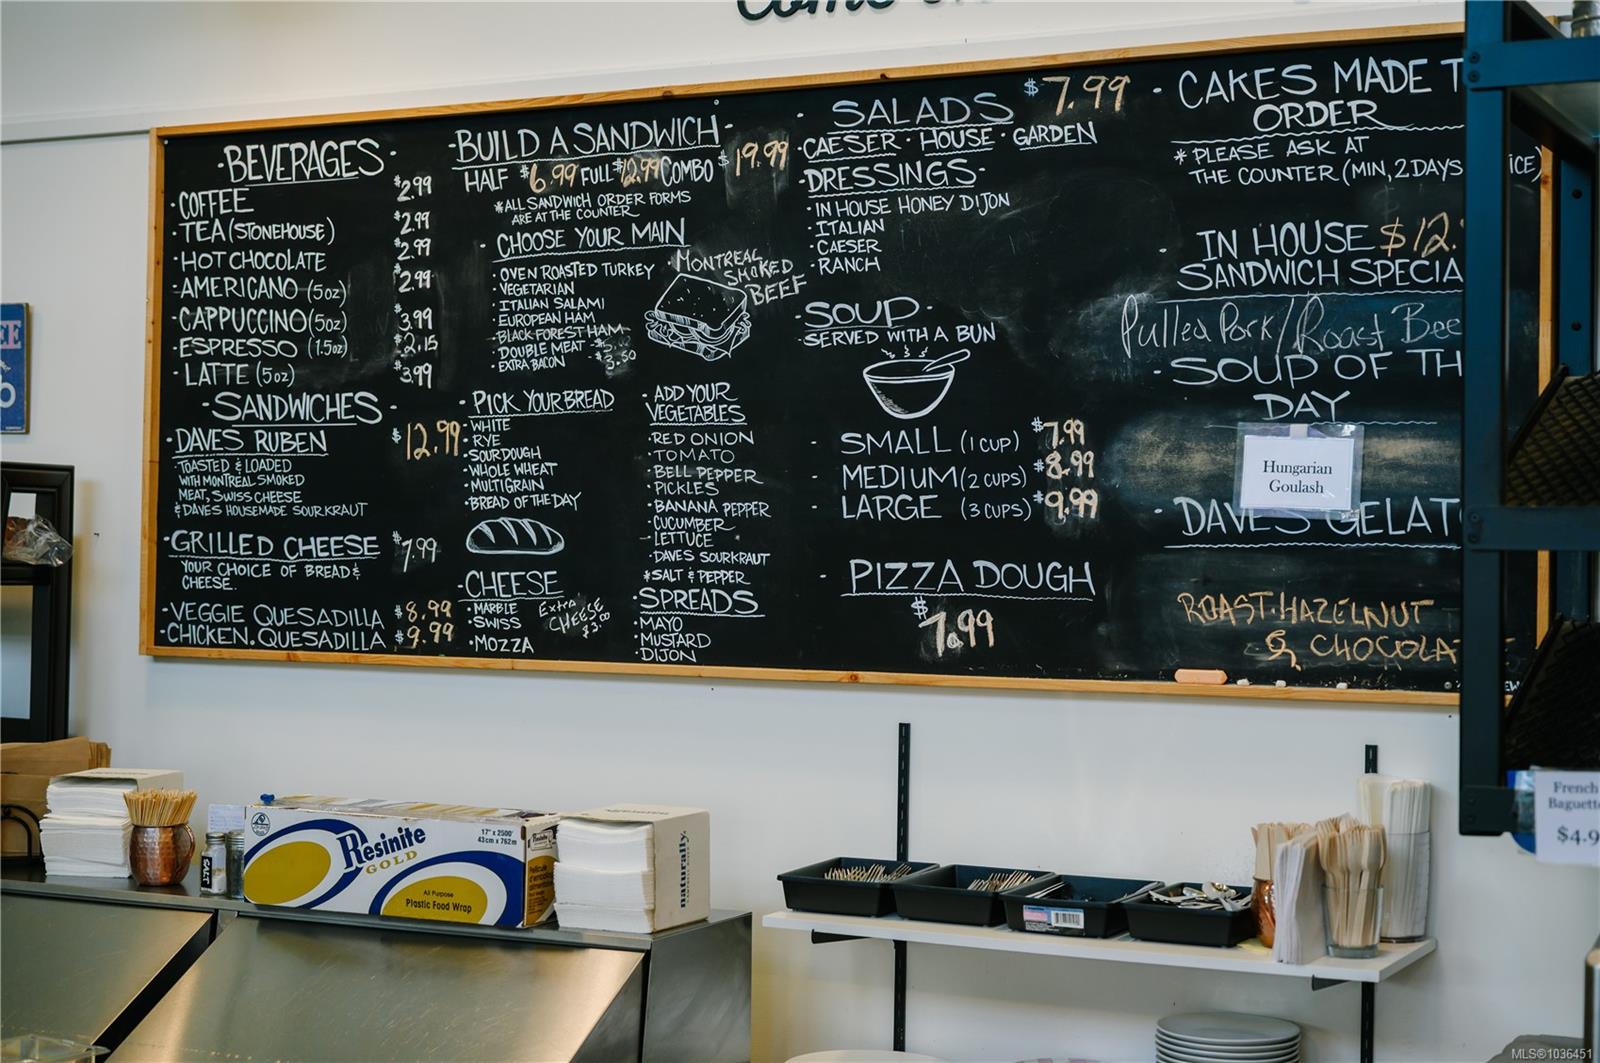 -BEVERAGES-
·COFFEE $2.99
·TEA (STONEHOUSE) $2.99
·HOT CHOCOLATE $2.99
·AMERICANO (5oz) $2.99
·CAPPUCCINO (5oz) $3.99
·ESPRESSO (1.5oz) $2.15
·LATTE (5oz) $3.99
·SANDWICHES·
·DAVES RUBEN $12.99
·TOASTED & LOADED
WITH MONTREAL SMOKED
MEAT, SWISS CHEESE
& DAVES HOUSEMADE SOURKRAUT
·GRILLED CHEESE $7.99
YOUR CHOICE OF BREAD &
CHEESE.
·VEGGIE QUESADILLA $8.99
·CHICKEN.QUESADILLA $9.99
-BUILD A SANDWICH-
HALF $6.99 FULL $12.99 COMBO $19.99
*ALL SANDWICH ORDER FORMS
ARE AT THE COUNTER
·CHOOSE YOUR MAIN
·OVEN ROASTED TURKEY
·VEGETARIAN
·ITALIAN SALAMI
·EUROPEAN HAM
·BLACK FOREST HAM
·DOUBLE MEAT
·EXTRA BACON -$3.50
·MONTREAL
SMOKED
BEEF
·PICK YOUR BREAD
·WHITE
·RYE
·SOURDOUGH
·WHOLE WHEAT
·MULTIGRAIN
·BREAD OF THE DAY
·CHEESE
·MARBLE
·SWISS
·MOZZA
Extra
CHEESE
$3.00
·ADD YOUR
VEGETABLES
·RED ONION
·TOMATO
·BELL PEPPER
·PICKLES
·BANANA PEPPER
·CUCUMBER
·LETTUCE
·DAVES SOURKRAUT
*SALT & PEPPER
·SPREADS
·MAYO
·MUSTARD
·DIJON
·SALADS $7.99
·CAESER·HOUSE·GARDEN
·DRESSINGS·
·IN HOUSE HONEY DIJON
·ITALIAN
·CAESER
·RANCH
·SOUP·
·SERVED WITH A BUN
- SMALL (1 CUP) $7.99
- MEDIUM (2 CUPS) $8.99
- LARGE (3 CUPS) $9.99
·PIZZA DOUGH
$7.99
·CAKES MADE T
ORDER
*PLEASE ASK AT
THE COUNTER (MIN, 2 DAYS ICE)
·IN HOUSE $12.
SANDWICH SPECIA
Pulled Pork/Roast Bee
·SOUP OF TH
DAY
Hungarian
Goulash
·DAVES GELAT
ROAST·HAZELNUT
& CHOCOLA
French
Baguett
$4.9
SALT
Resinite
GOLD
17" x 2500'
43cm x 762m
All Purpose
Plastic Food Wrap
naturally
MLS®1036451